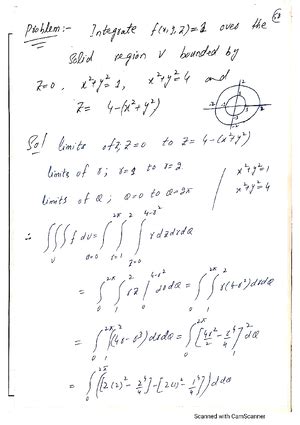 Problem:- Integrate f(x,y,z)=1 over the
solid region V bounded by
z=0, x²+y²=1, x²+y²=4 and
z= 4-(x²+y²)
Sol limits of z; z=0 to z= 4-(x²+y²)
limits of r; r=1 to r=2
x²+y²=1
x²+y²=4
limits of θ; θ=0 to θ=2π
∴ ∫∫∫_V f dv = ∫_{θ=0}^{2π} ∫_{r=1}^{2} ∫_{z=0}^{4-r²} r dz dr dθ
= ∫_0^{2π} ∫_1^2 rz |_0^{4-r²} dr dθ = ∫_0^{2π} ∫_1^2 r(4-r²) dr dθ
= ∫_0^{2π} ∫_1^2 (4r-r³) dr dθ = ∫_0^{2π} [4r²/2 - r⁴/4]_1^2 dθ
= ∫_0^{2π} ([2(2)² - 2⁴/4] - [2(1)² - 1⁴/4]) dθ
Scanned with CamScanner